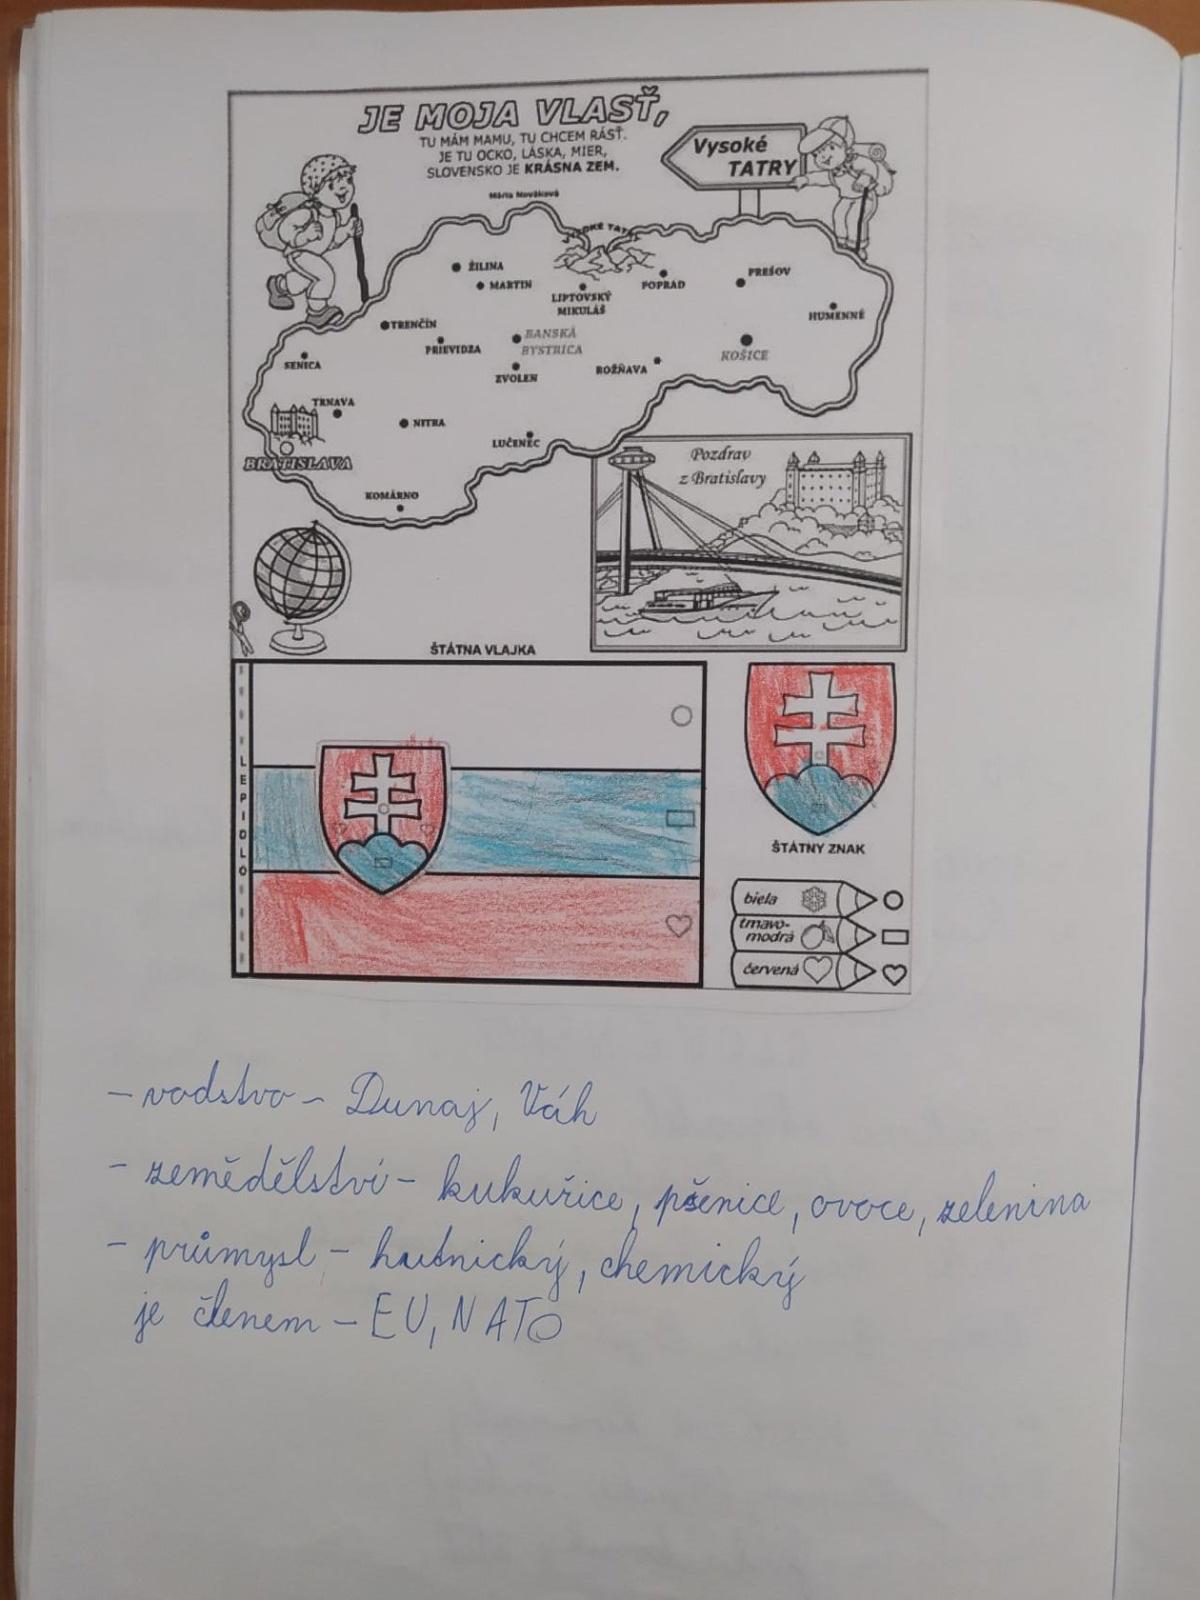 JE MOJA VLASŤ,
TU MÁM MAMU, TU CHCEM RÁSŤ.
JE TU OCKO, LÁSKA, MIER,
SLOVENSKO JE KRÁSNA ZEM.
Mária Nováková
Vysoké
TATRY
VYSOKÉ TATRY
ŽILINA
MARTIN
LIPTOVSKÝ
MIKULÁŠ
POPRAD
PREŠOV
HUMENNÉ
TRENČÍN
PRIEVIDZA
BANSKÁ
BYSTRICA
KOŠICE
SENICA
ZVOLEN
ROŽŇAVA
TRNAVA
NITRA
LUČENEC
BRATISLAVA
KOMÁRNO
Pozdrav
z Bratislavy
ŠTÁTNA VLAJKA
LEPIDLO
ŠTÁTNY ZNAK
biela
tmavo-
modrá
červená
- vodstvo - Dunaj, Váh
- zemědělství - kukuřice, pšenice, ovoce, zelenina
- průmysl - hutnický, chemický
je členem - EU, NATO